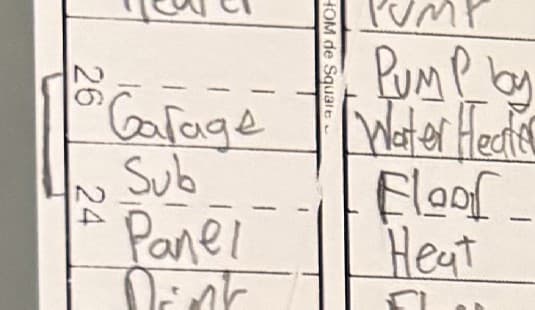 Heater
26
Garage
Sub
24
Panel
HOM de Square
Pump
Pump by
Water Heater
Floor
Heat